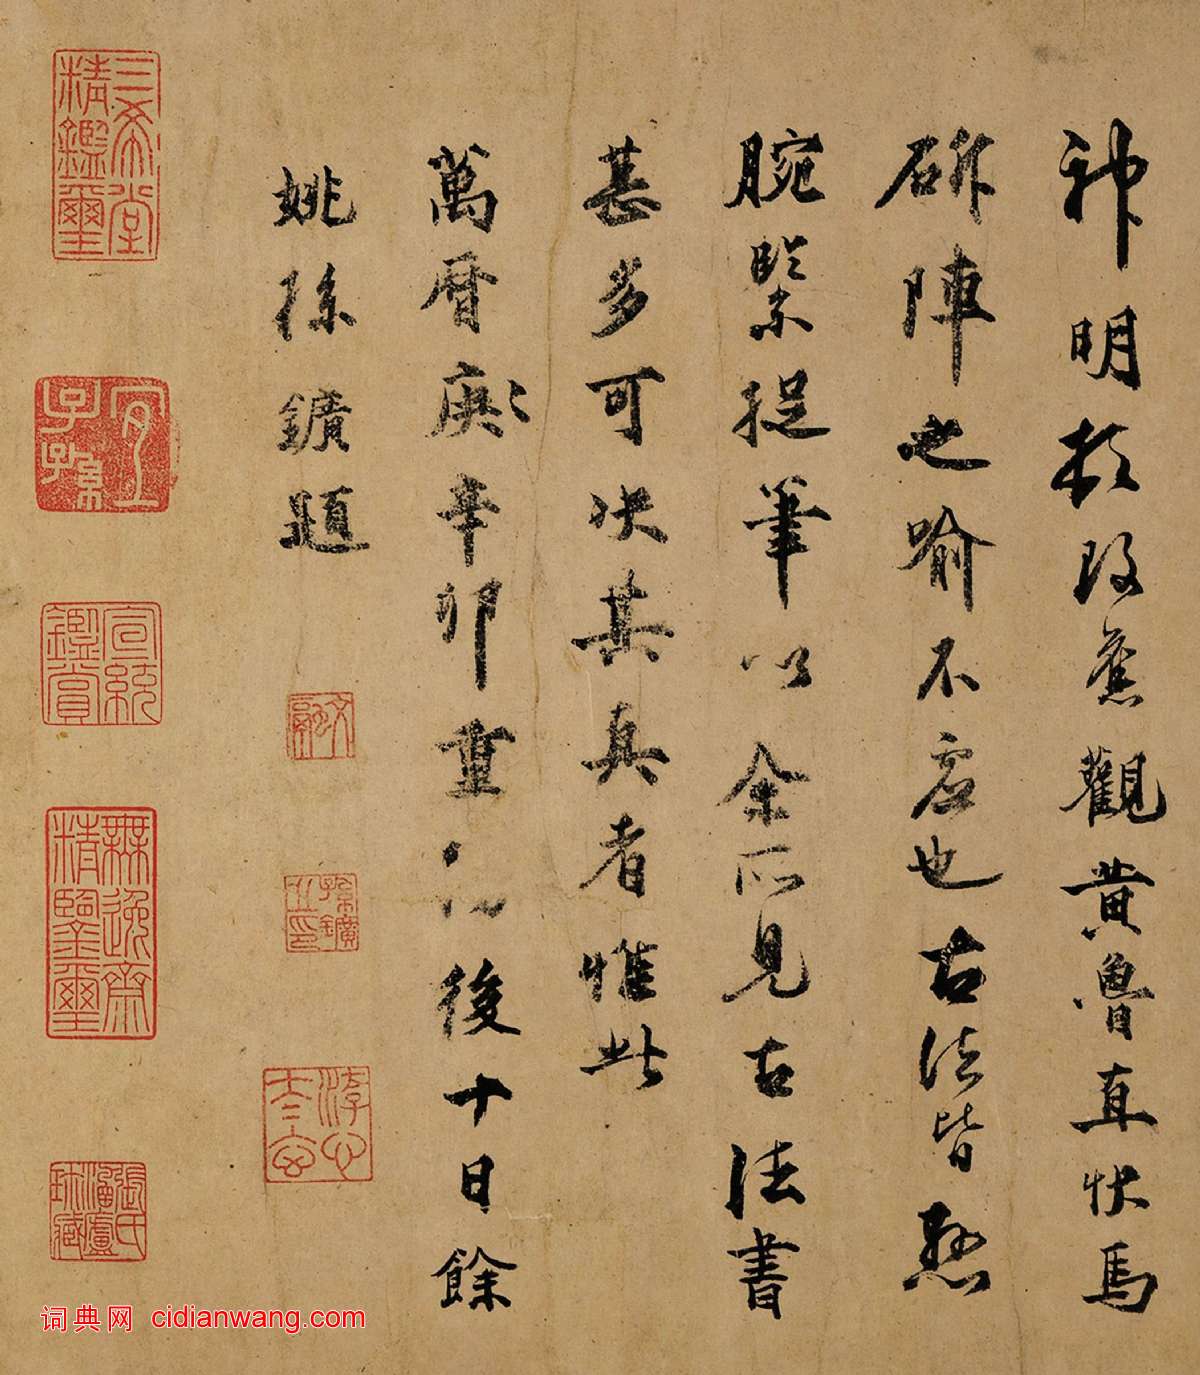 神明頓改舊觀黃魯直快馬
斫陣之喻不虛也古法皆懸
腕緊捉筆以余所見古法書
甚多可決其真者惟此
萬曆庚辛卯重後十日餘
姚孫鑛題
三希堂精鑑璽
宜子孫
宣統鑑賞
無逸齋精鑒璽
文融
孫鑛之印
張氏珍藏
词典网 cidianwang.com